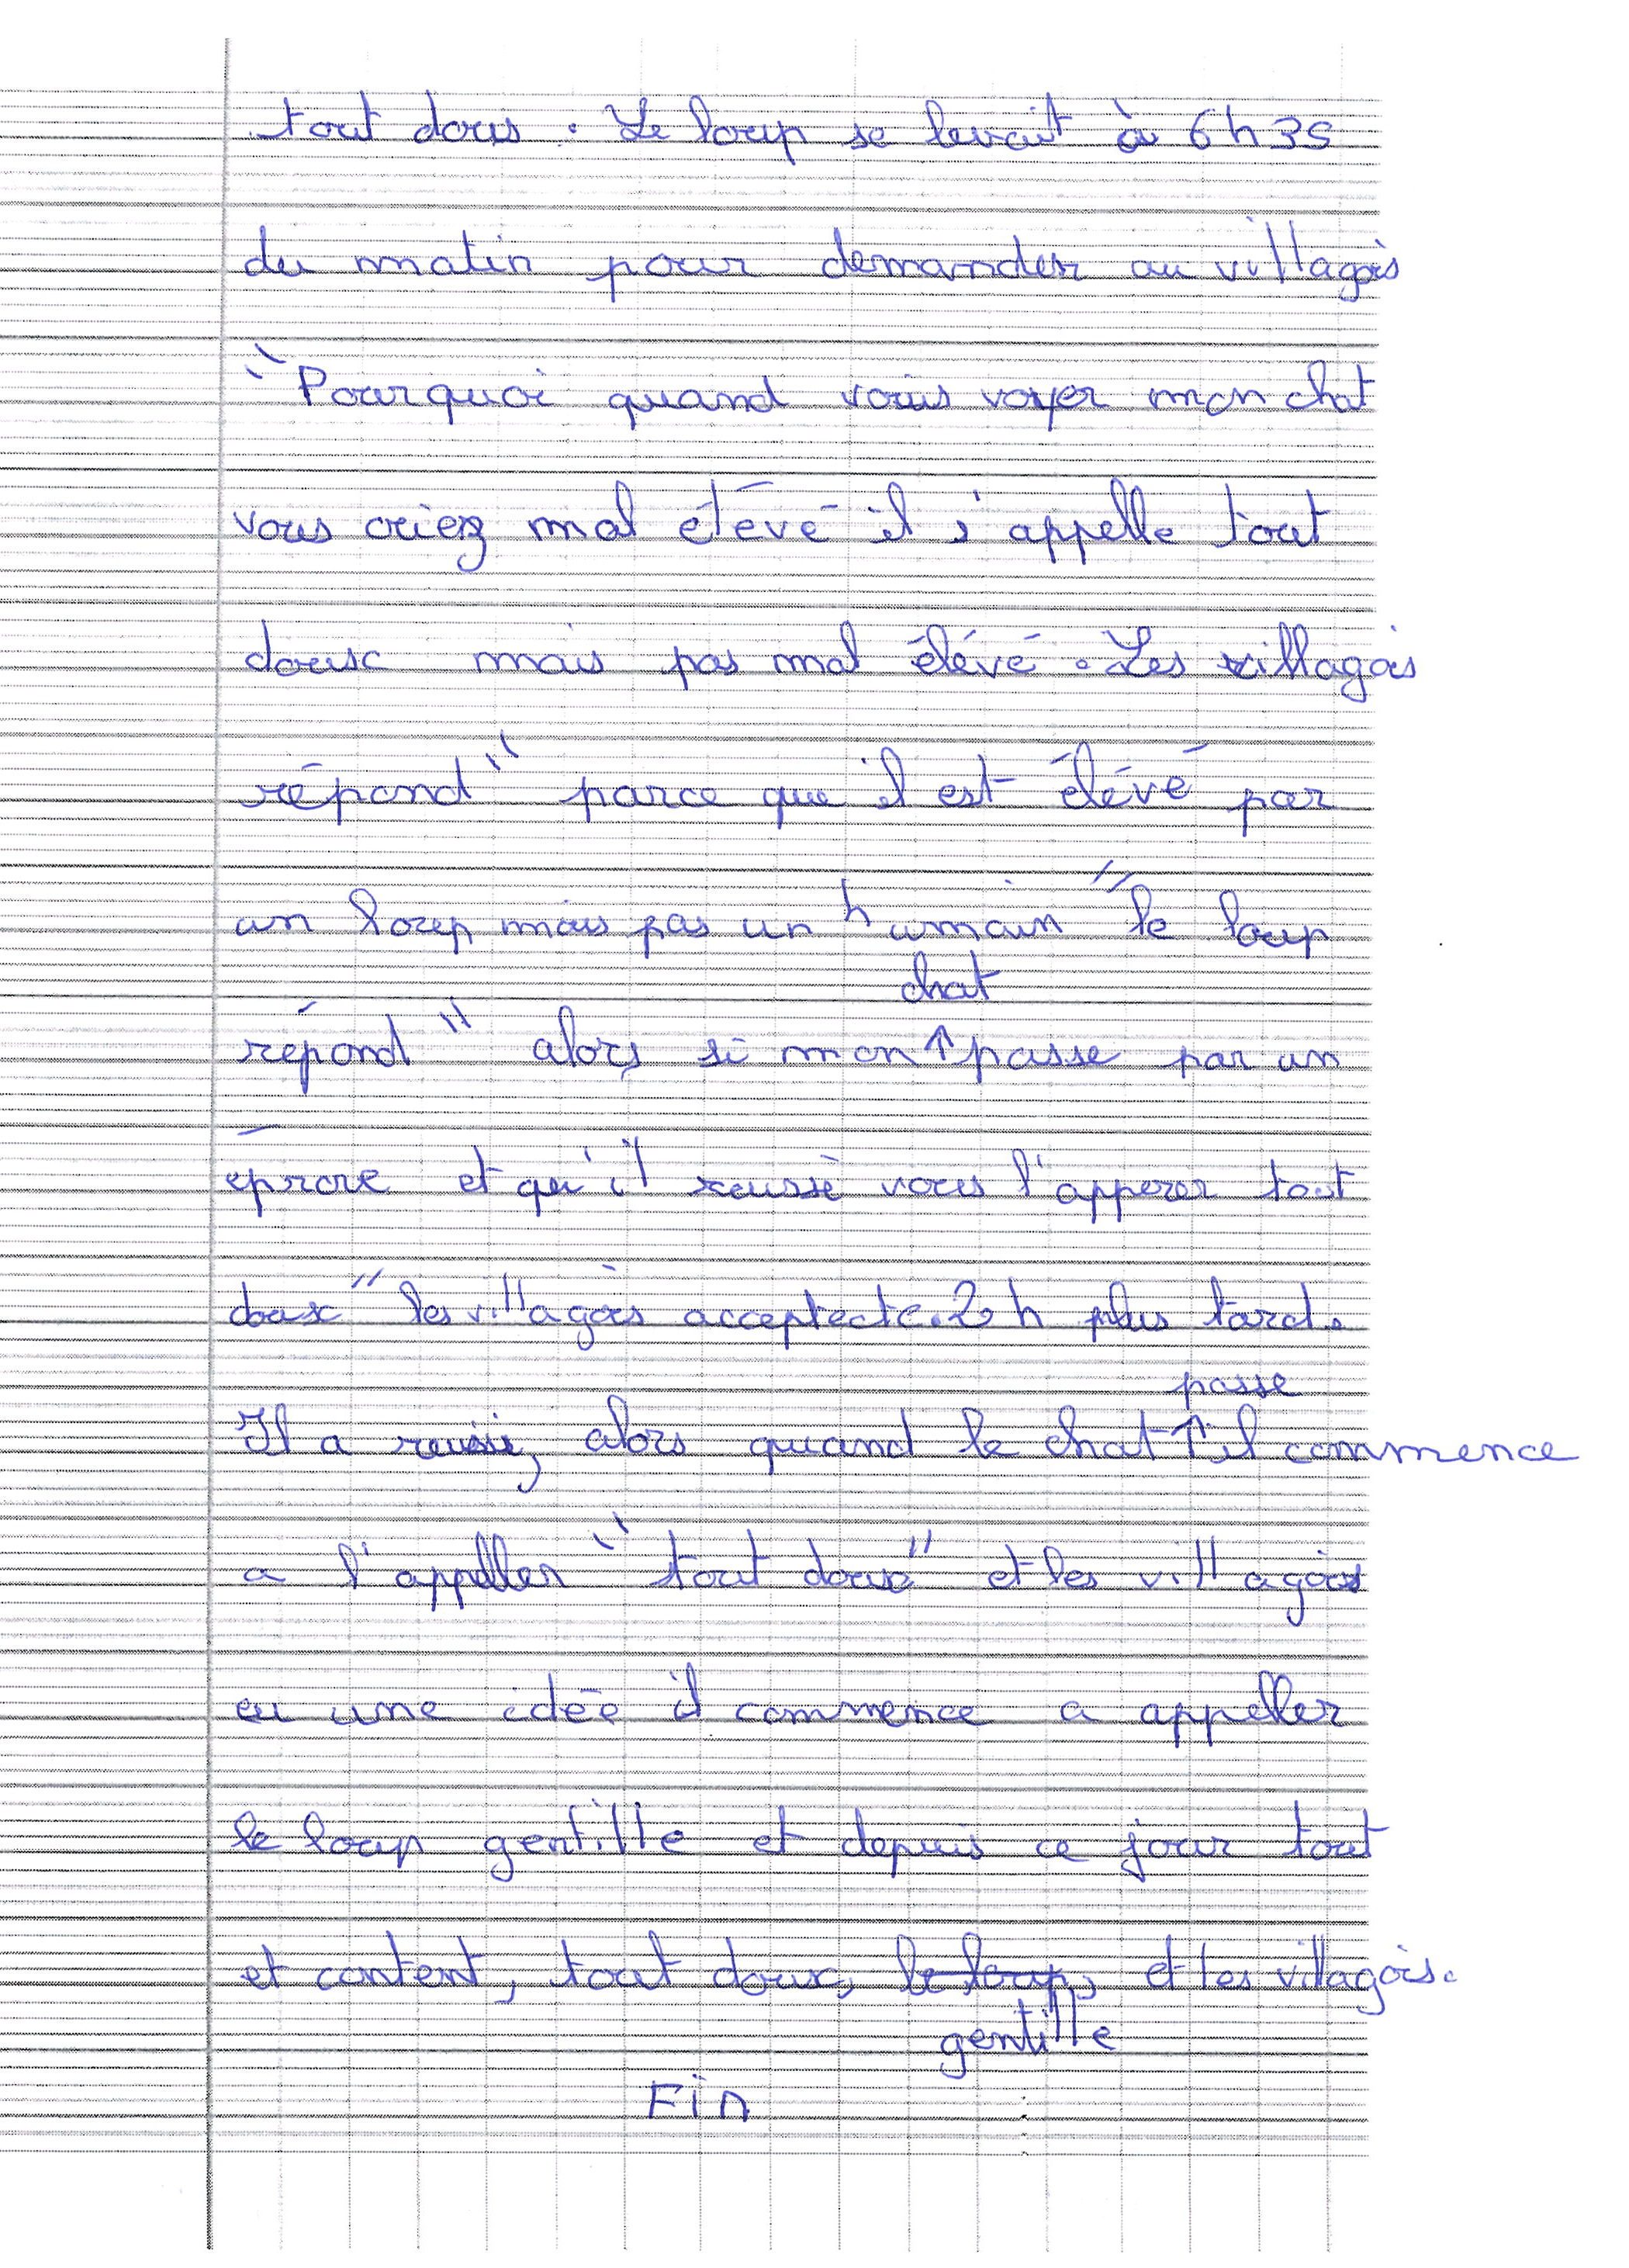 tout dous. Le loup se levait à 6h35
du matin pour demander au villagois
"Pourquoi quand vous voyer mon chat
vous criez mal élévé il s'appelle tout
doux mais pas mal élévé. Les villagois
répond" parce que il est élévé par
un loup mais pas un humain" le loup
chat
répond" alors si mon↑passe par un
éprove et qu'il reussè vous l'apperer tout
doux" les villagois acceptecte. 2h plus tard.
passe
Il a reussi, alors quand le chat↑il commence
a l'appeller "tout doux" et les villagois
eu une idée il commence a appeller
le loup gentille et depuis ce jour tout
et content, tout doux, le loup, et les villagois.
gentille
Fin